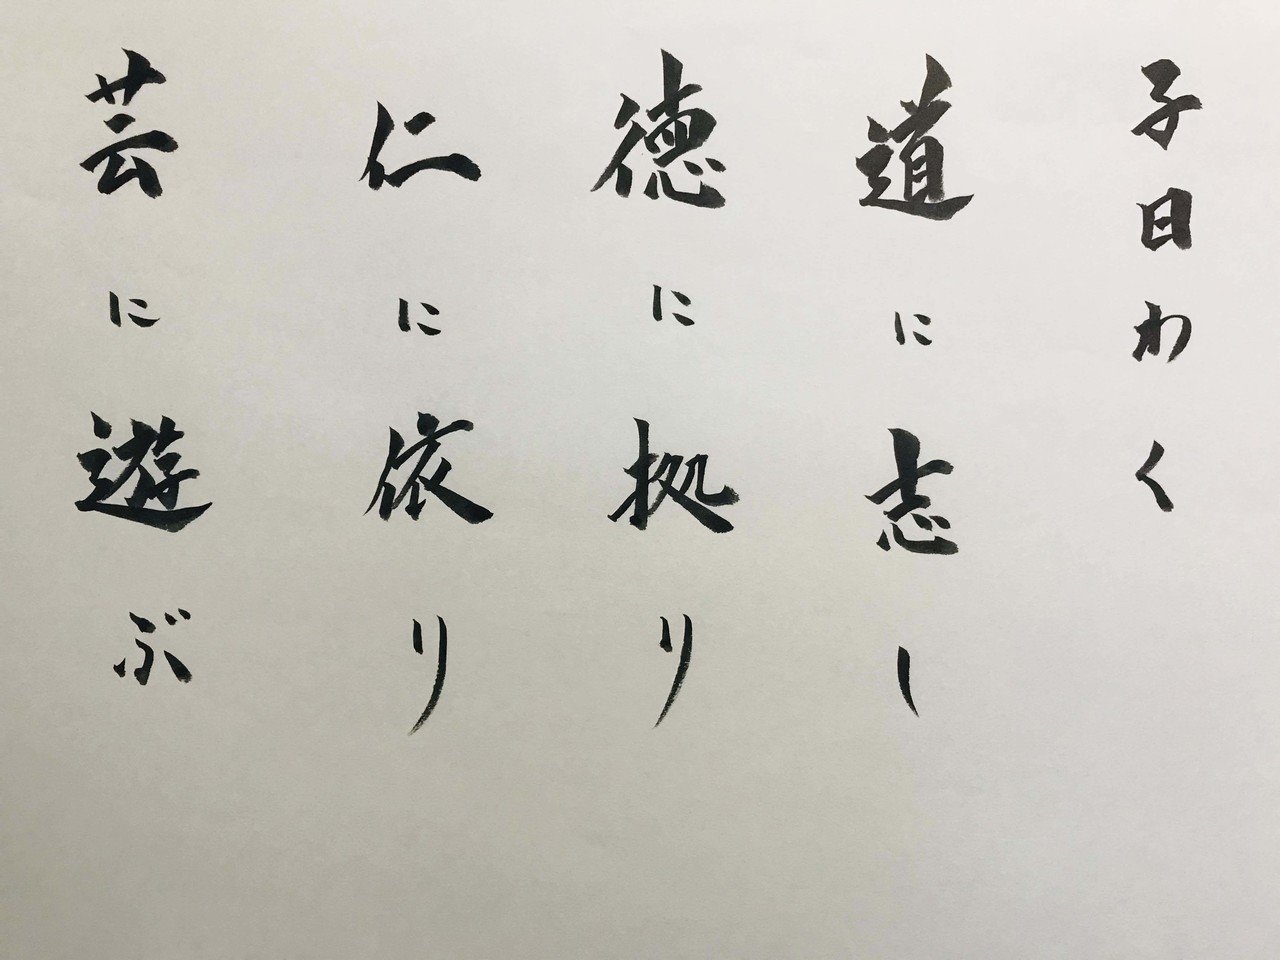 子曰わく
道に志し
徳に拠り
仁に依り
芸に遊ぶ